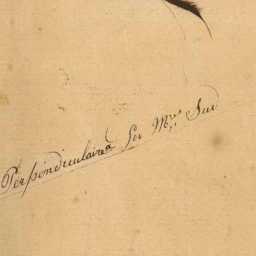 Perpendiculaire Per M.rs Sud